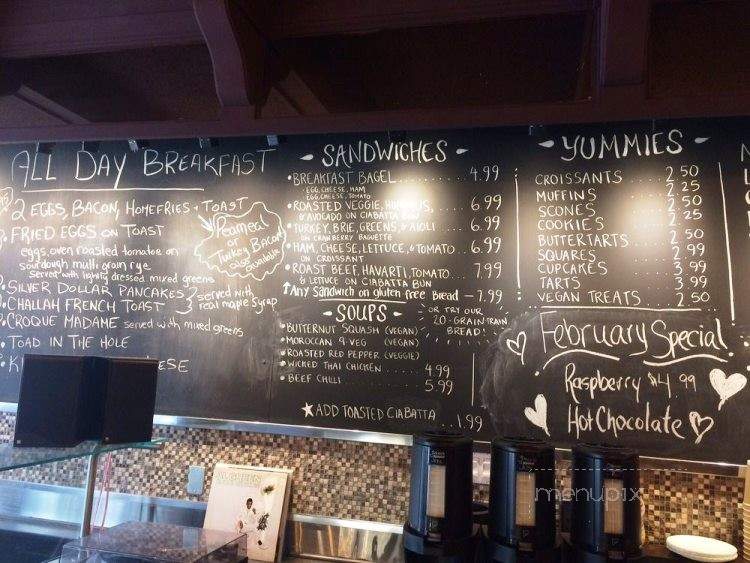 ALL DAY BREAKFAST
2 EGGS, BACON, HOMEFRIES + TOAST
FRIED EGGS ON TOAST
eggs, oven roasted tomatoe on
sourdough multi grain rye
served with lightly dressed mixed greens
SILVER DOLLAR PANCAKES
CHALLAH FRENCH TOAST
served with
real maple syrup
CROQUE MADAME served with mixed greens
TOAD IN THE HOLE
Peameal
or
Turkey Bacon
also
available
- SANDWICHES -
• BREAKFAST BAGEL 4.99
EGG, CHEESE, HAM
EGG, CHEESE, TOMATO
• ROASTED VEGGIE, HUMMUS, 6.99
& AVOCADO ON CIABATTA BUN
• TURKEY, BRIE, GREENS, & AIOLI 6.99
ON CRANBERRY BAGUETTE
• HAM, CHEESE, LETTUCE, & TOMATO 6.99
ON CROISSANT
• ROAST BEEF, HAVARTI, TOMATO 7.99
& LETTUCE ON CIABATTA BUN
↑ Any Sandwich on gluten free Bread - 7.99
OR TRY OUR
20-GRAIN TRAIN
BREAD!
- SOUPS -
• BUTTERNUT SQUASH (VEGAN)
• MOROCCAN 9 VEG (VEGAN)
• ROASTED RED PEPPER (VEGGIE)
• WICKED THAI CHICKEN 4.99
• BEEF CHILI 5.99
★ ADD TOASTED CIABATTA 1.99
- YUMMIES -
CROISSANTS 2.50
MUFFINS 2.25
SCONES 2.50
COOKIES 2.25
BUTTERTARTS 2.50
SQUARES 2.99
CUPCAKES 3.99
TARTS 3.99
VEGAN TREATS 2.50
February Special
Raspberry $4.99
Hot Chocolate
AL GREEN
menupix